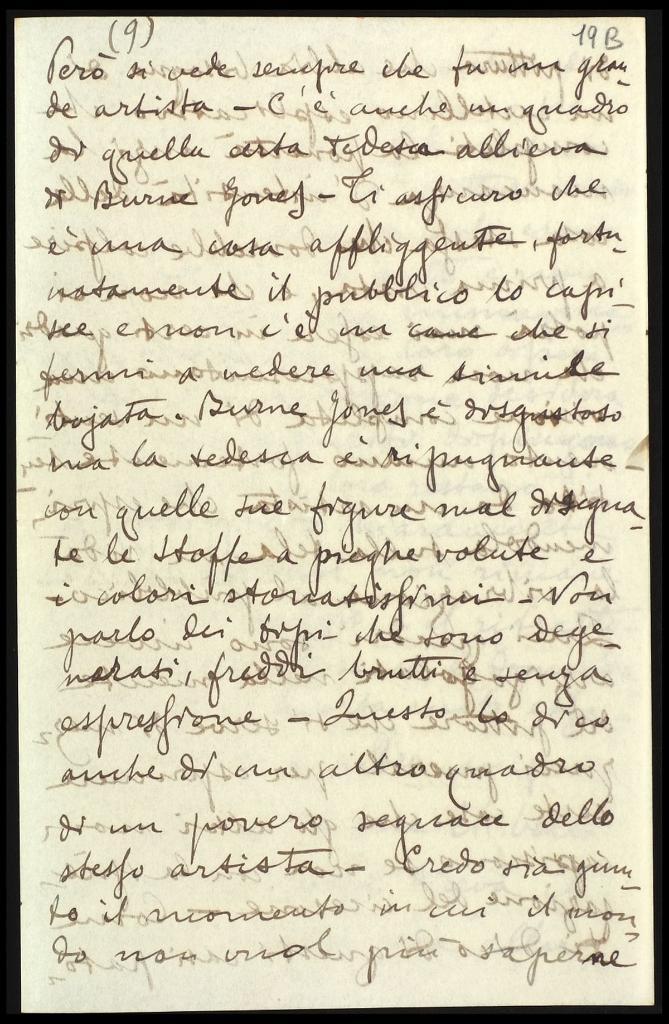 (9)
19B
Però si vede sempre che fu un gran
de artista – C'è anche un quadro
di quella certa Tedesca allieva
di Burne Jones – Ti assicuro che
è una cosa affliggente, fortu-
natamente il pubblico lo capi-
sce e non c'è un cane che si
fermi a vedere una simile
bojata. Burne Jones è disgustoso
ma la tedesca è ripugnante
con quelle sue figure mal disegna-
te le stoffe a pieghe volute e
i colori stonatissimi – Non
parlo dei tipi che sono dege-
nerati, freddi brutti e senza
espressione – Questo lo dico
anche di un altro quadro
di un povero seguace dello
stesso artista – Credo sia giun-
to il momento in cui il mon-
do non vuol più saperne